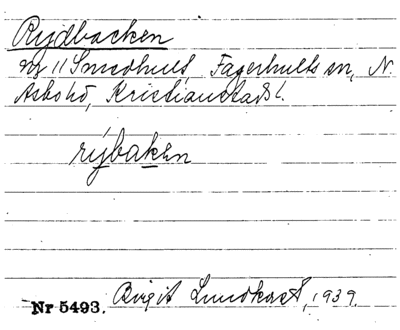 Rydbacken
nr 11 Smedhult, Fagerhults sn, N.
Åsbo hd, Kristianstads l.
rýbaken
Nr 5493. Birgit Lundkast, 1939.